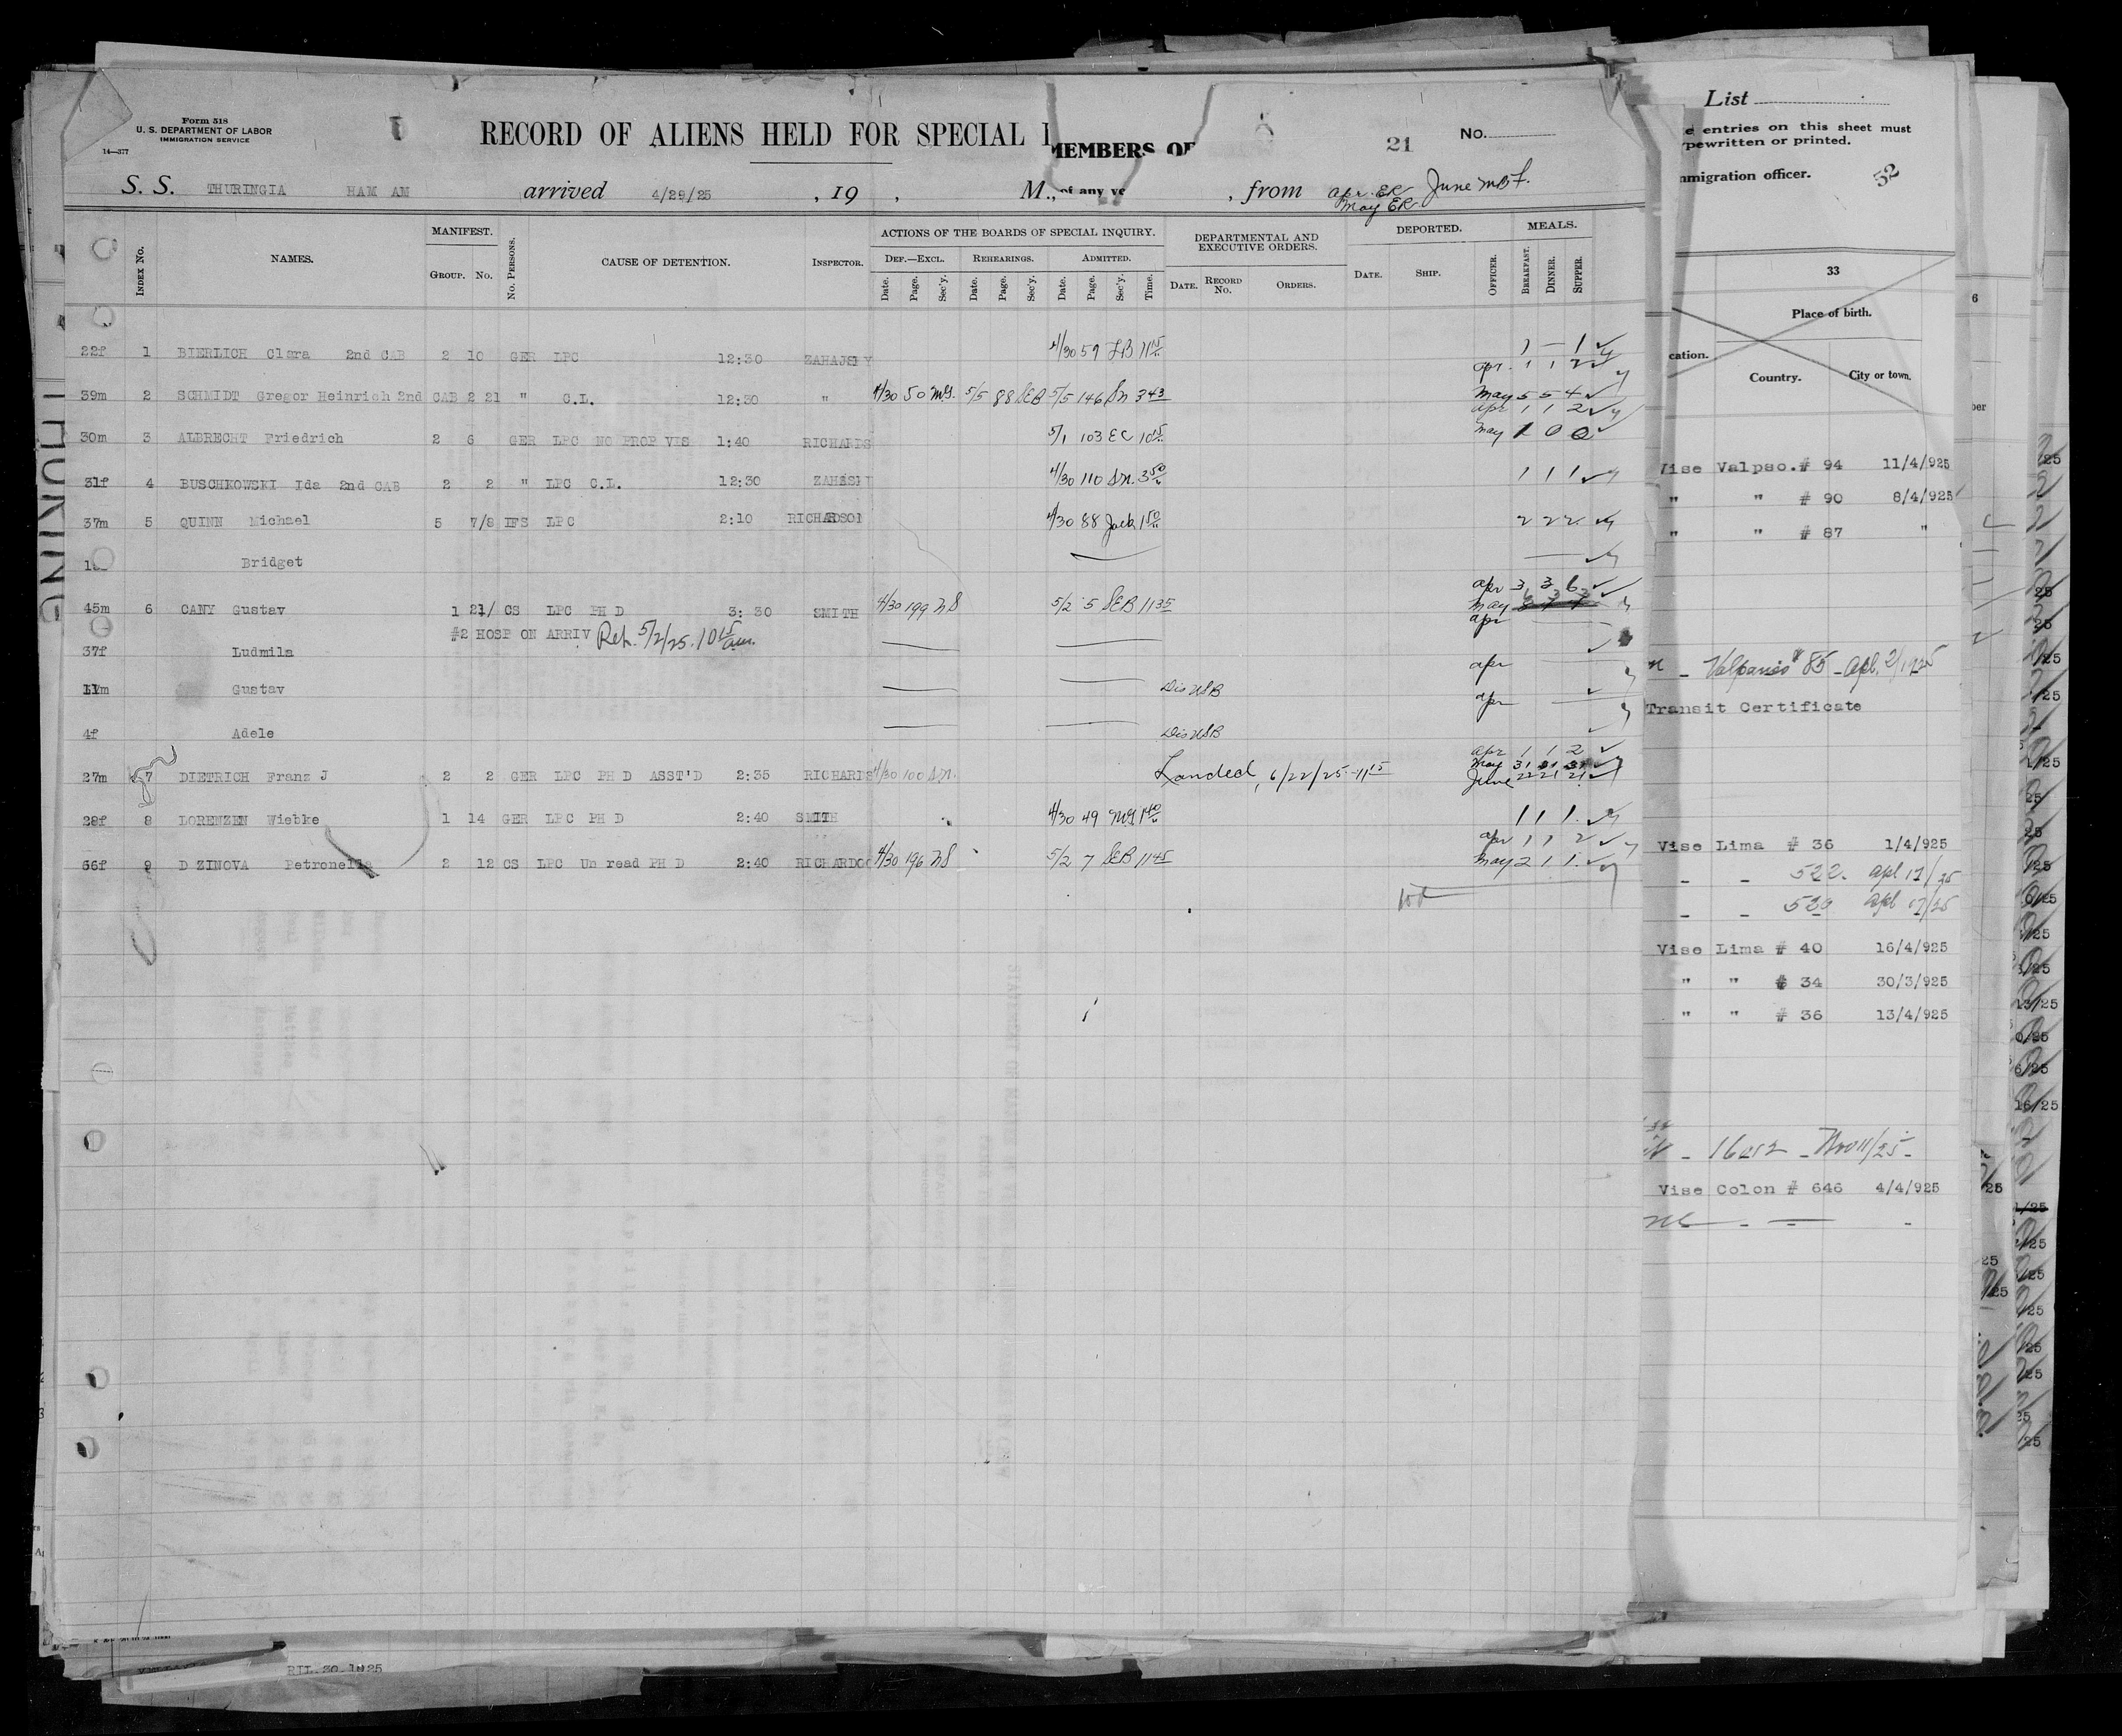 Form 518
U. S. DEPARTMENT OF LABOR
IMMIGRATION SERVICE
14—377
RECORD OF ALIENS HELD FOR SPECIAL I
MEMBERS OF
21
No.
S. S. THURINGIA HAM AM arrived 4/29/25 , 19 , M., of any ve , from apr. ER June MBF.
May ER
INDEX No.
NAMES.
MANIFEST.
GROUP. No.
No. PERSONS.
CAUSE OF DETENTION.
INSPECTOR.
ACTIONS OF THE BOARDS OF SPECIAL INQUIRY.
DEF.—EXCL. REHEARINGS. ADMITTED.
Date. Page. Sec'y. Date. Page. Sec'y. Date. Page. Sec'y. Time.
DEPARTMENTAL AND EXECUTIVE ORDERS.
DATE. RECORD No. ORDERS.
DEPORTED.
DATE. SHIP. OFFICER.
MEALS.
BREAKFAST. DINNER. SUPPER.
22f 1 BIERLICH Clara 2nd CAB 2 10 GER LPC 12:30 ZAHAJSKY 4/30 59 LB 11 15 1 — 1
apr. 1 1 2
39m 2 SCHMIDT Gregor Heinrich 2nd CAB 2 21 " C.L. 12:30 " 4/30 50 MG. 5/5 88 SEB 5/5 146 Sn 3 43 May 5 5 4
apr 1 1 2
30m 3 ALBRECHT Friedrich 2 6 GER LPC NO PROP VIS 1:40 RICHARDS 5/1 103 EC 10 15 May 1 0 0
31f 4 BUSCHKOWSKI Ida 2nd CAB 2 2 " LPC C.L. 12:30 4/30 110 Sn. 3 50 1 1 1
37m 5 QUINN Michael 5 7/8 IFS LPC 2:10 RICHARDSON 4/30 88 1 50 2 2 2
Bridget
apr 3 3 6
45m 6 CANY Gustav 1 21/ CS LPC PH D 3:30 SMITH 4/30 199 NS 5/2 5 SEB 11 35 May
#2 HOSP ON ARRIV Ret. 5/2/25. 10 15 am. apr
37f Ludmila
apr
11m Gustav Dis NSB
apr
4f Adele Dis NSB
apr 1 1 2
27m 7 DIETRICH Franz J 2 2 GER LPC PH D ASST'D 2:35 RICHARDS 4/30 100 Sn. Landed, 6/22/25 - 11 15 May 31 31 31
June 22 21 21
28f 8 LORENZEN Wiebke 1 14 GER LPC PH D 2:40 SMITH 4/30 49 MG 1 40 1 1 1
apr 1 1 2
66f 9 D ZINOVA Petronella 2 12 CS LPC Un read PH D 2:40 RICHARDSO 4/30 196 NS 5/2 7 SEB 11 45 May 2 1 1
List
e entries on this sheet must
ypewritten or printed.
mmigration officer.
52
33
Place of birth.
cation.
Country. City or town.
Vise Valpso.# 94 11/4/925
" " # 90 8/4/925
" " # 87 "
Valparaiso # 85 - Apl. 2/1925
Transit Certificate
Vise Lima # 36 1/4/925
522. apl 17/25
520 apl 17/25
Vise Lima # 40 16/4/925
" " # 34 30/3/925
" " # 36 13/4/925
Vise Colon # 646 4/4/925
RIL.30.1925